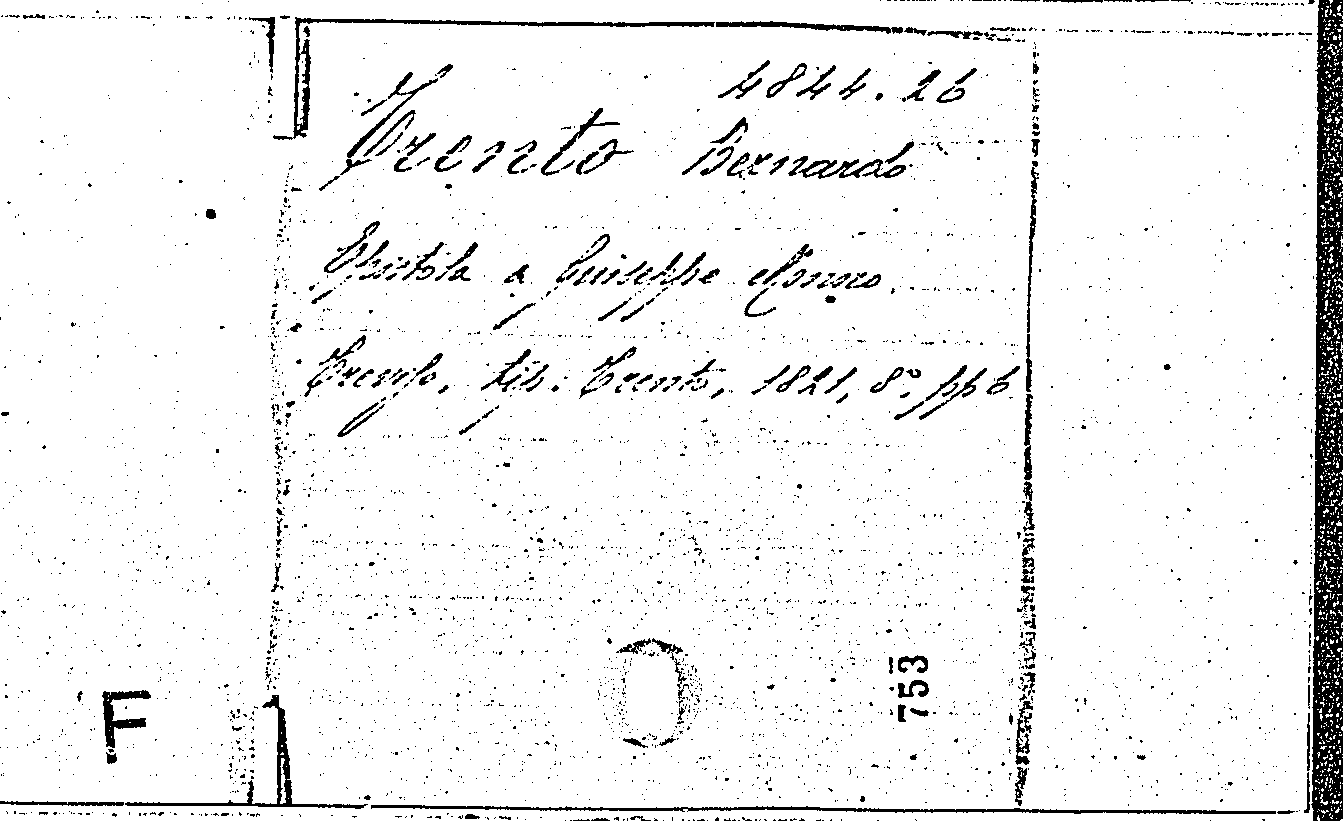 4844.26
Trento Bernardo
Epistola a Giuseppe
Treviso, tip. Trento, 1821, 8° pp 6
753
F